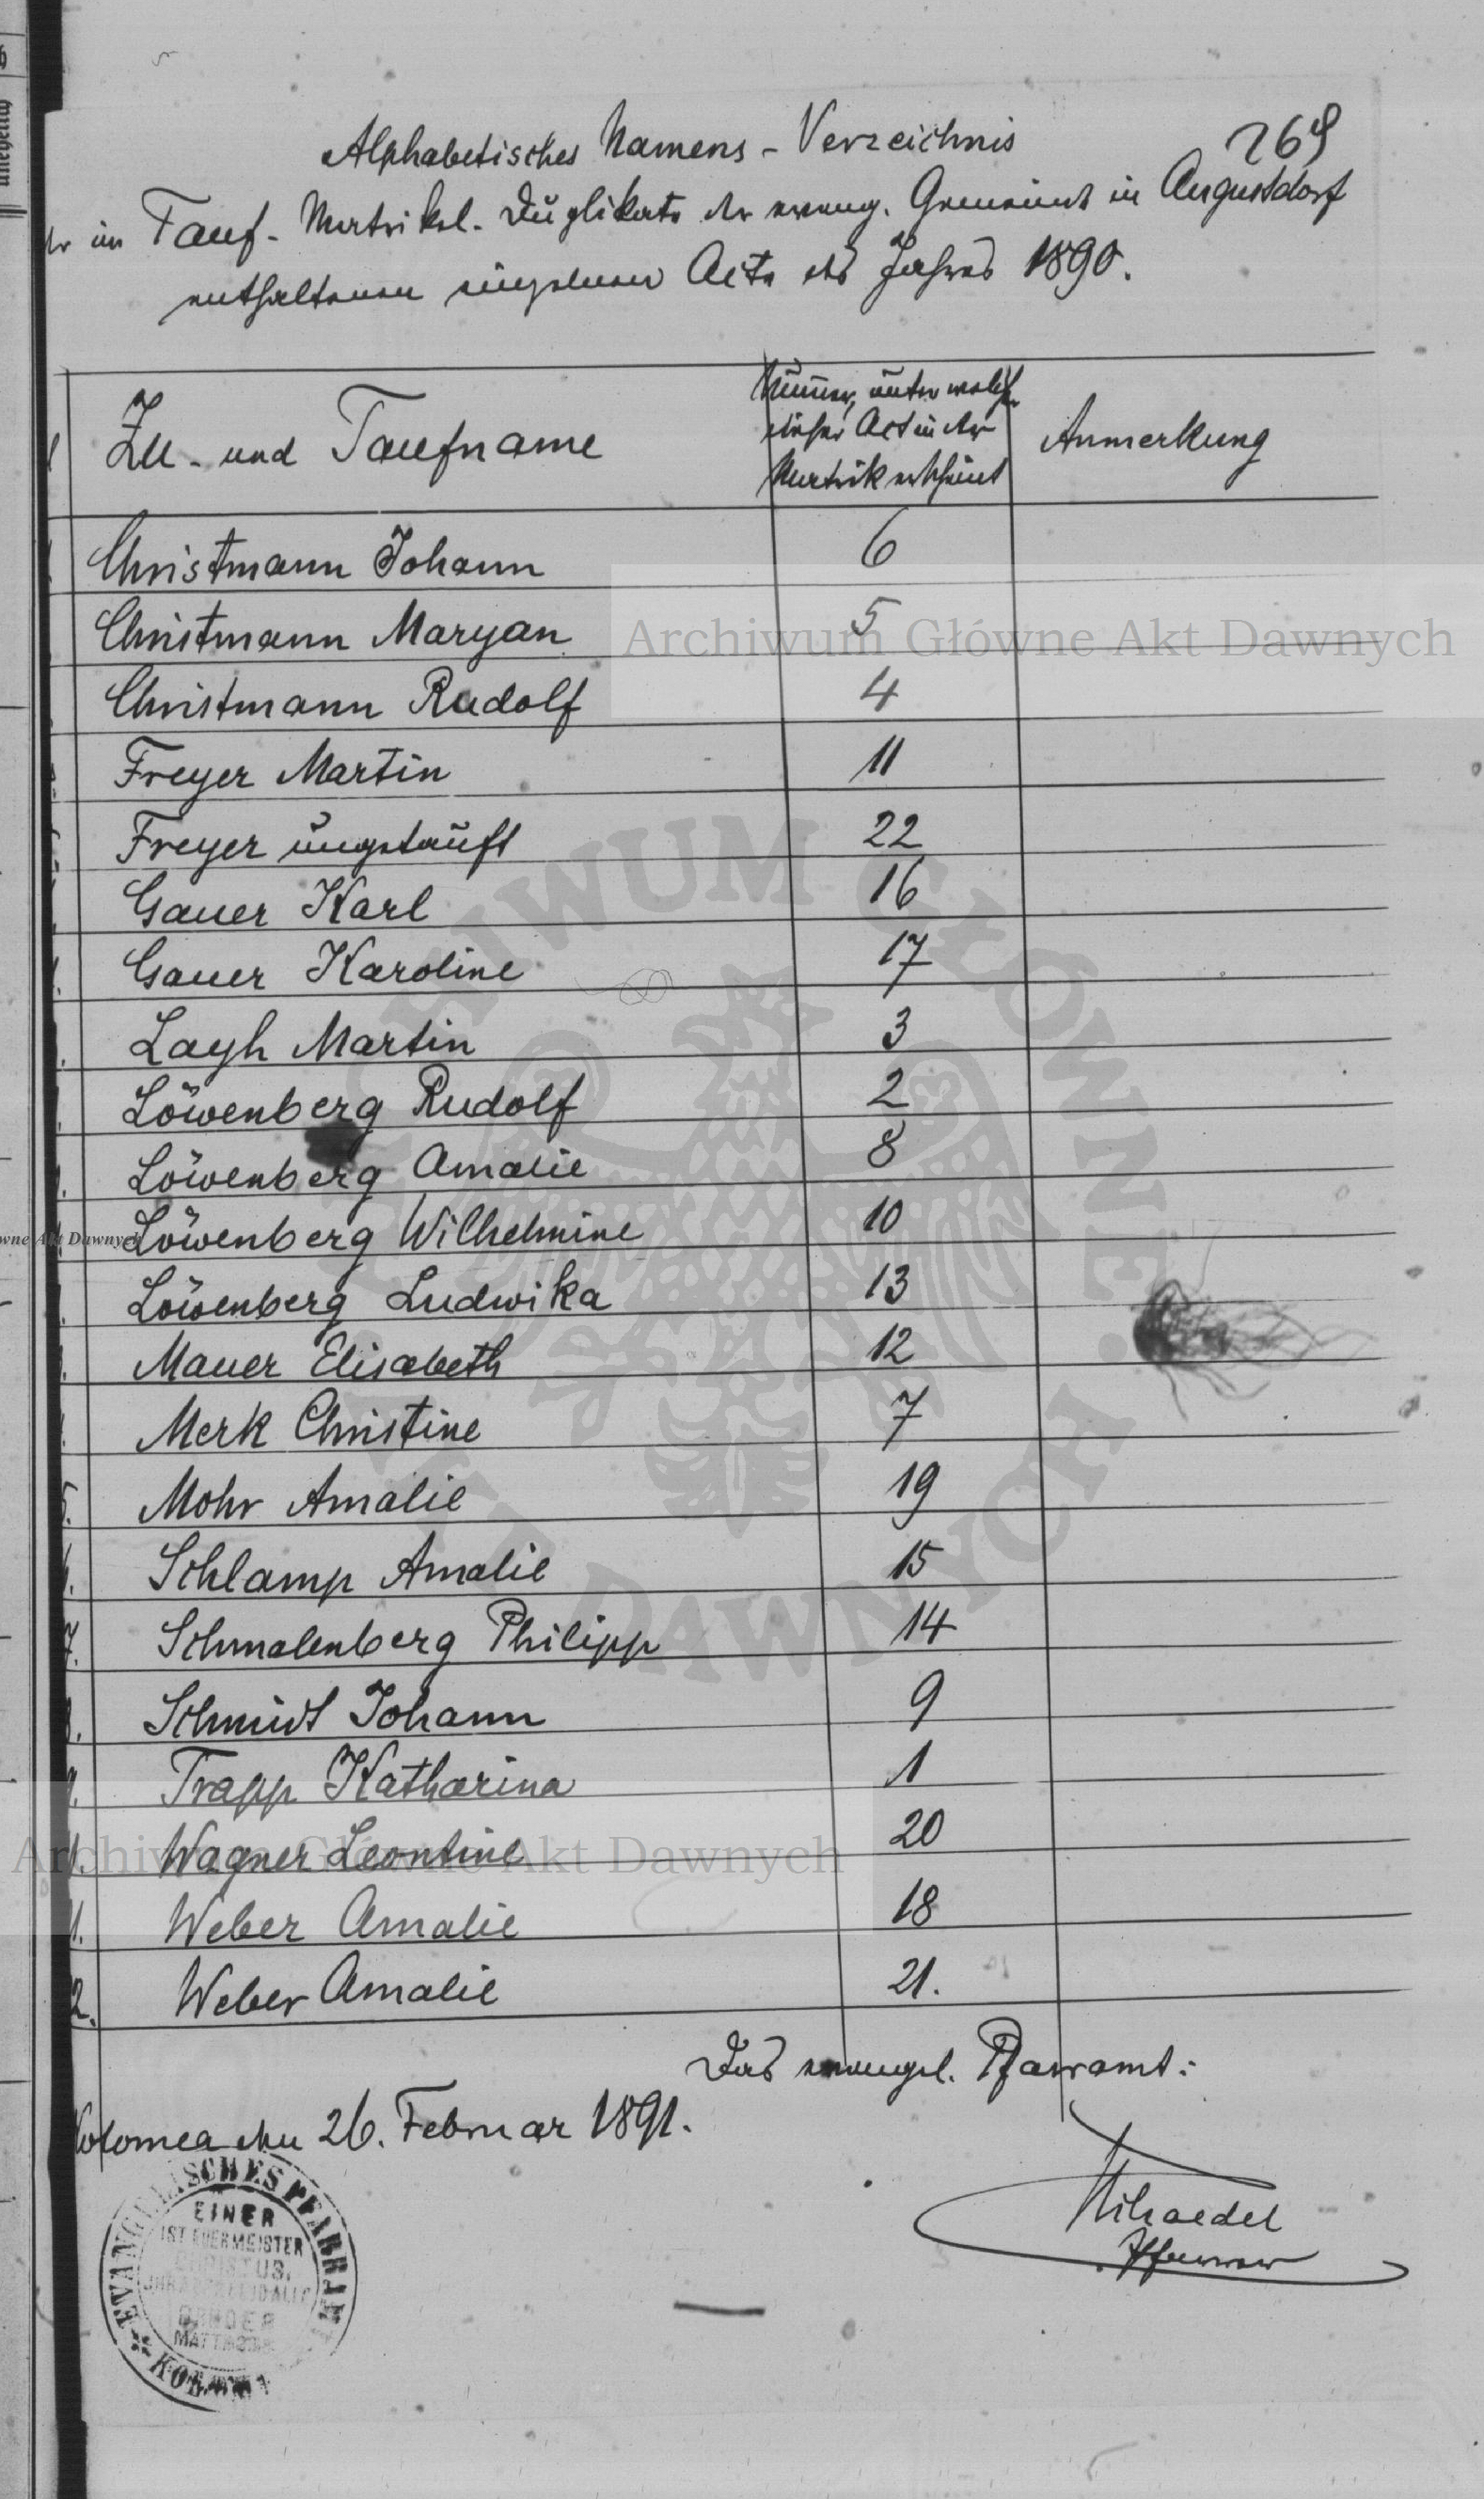 Alphabetisches Namens-Verzeichnis
269
der im Tauf-Matrikel-Duplikate der evang. Gemeinde in Augustdorf
enthaltenen einzelnen Acte des Jahres 1890.
Zu- und Taufname
Nummer, unter welcher
dieser Act in der
Matrik erscheint
Anmerkung
Christmann Johann 6
Christmann Maryan 5
Christmann Rudolf 4
Freyer Martin 11
Freyer ungetauft 22
Gauer Karl 16
Gauer Karoline 17
Layh Martin 3
Löwenberg Rudolf 2
Löwenberg Amalie 8
Löwenberg Wilhelmine 10
Löwenberg Ludwika 13
Mauer Elisabeth 12
Merk Christine 7
5. Mohr Amalie 19
6. Schlamp Amalie 15
7. Schmalenberg Philipp 14
8. Schmidt Johann 9
9. Trapp Katharina 1
Wagner Leontine 20
1. Weber Amalie 18
2. Weber Amalie 21.
Das evangel. Pfarramt:
Kolomea den 26. Februar 1891.
Pfarrer
EVANGELISCHES PFARRAMT
EINER
IST EUER MEISTER
CHRISTUS,
Archiwum Główne Akt Dawnych
Archiwum Główne Akt Dawnych
ARCHIWUM GŁÓWNE AKT DAWNYCH